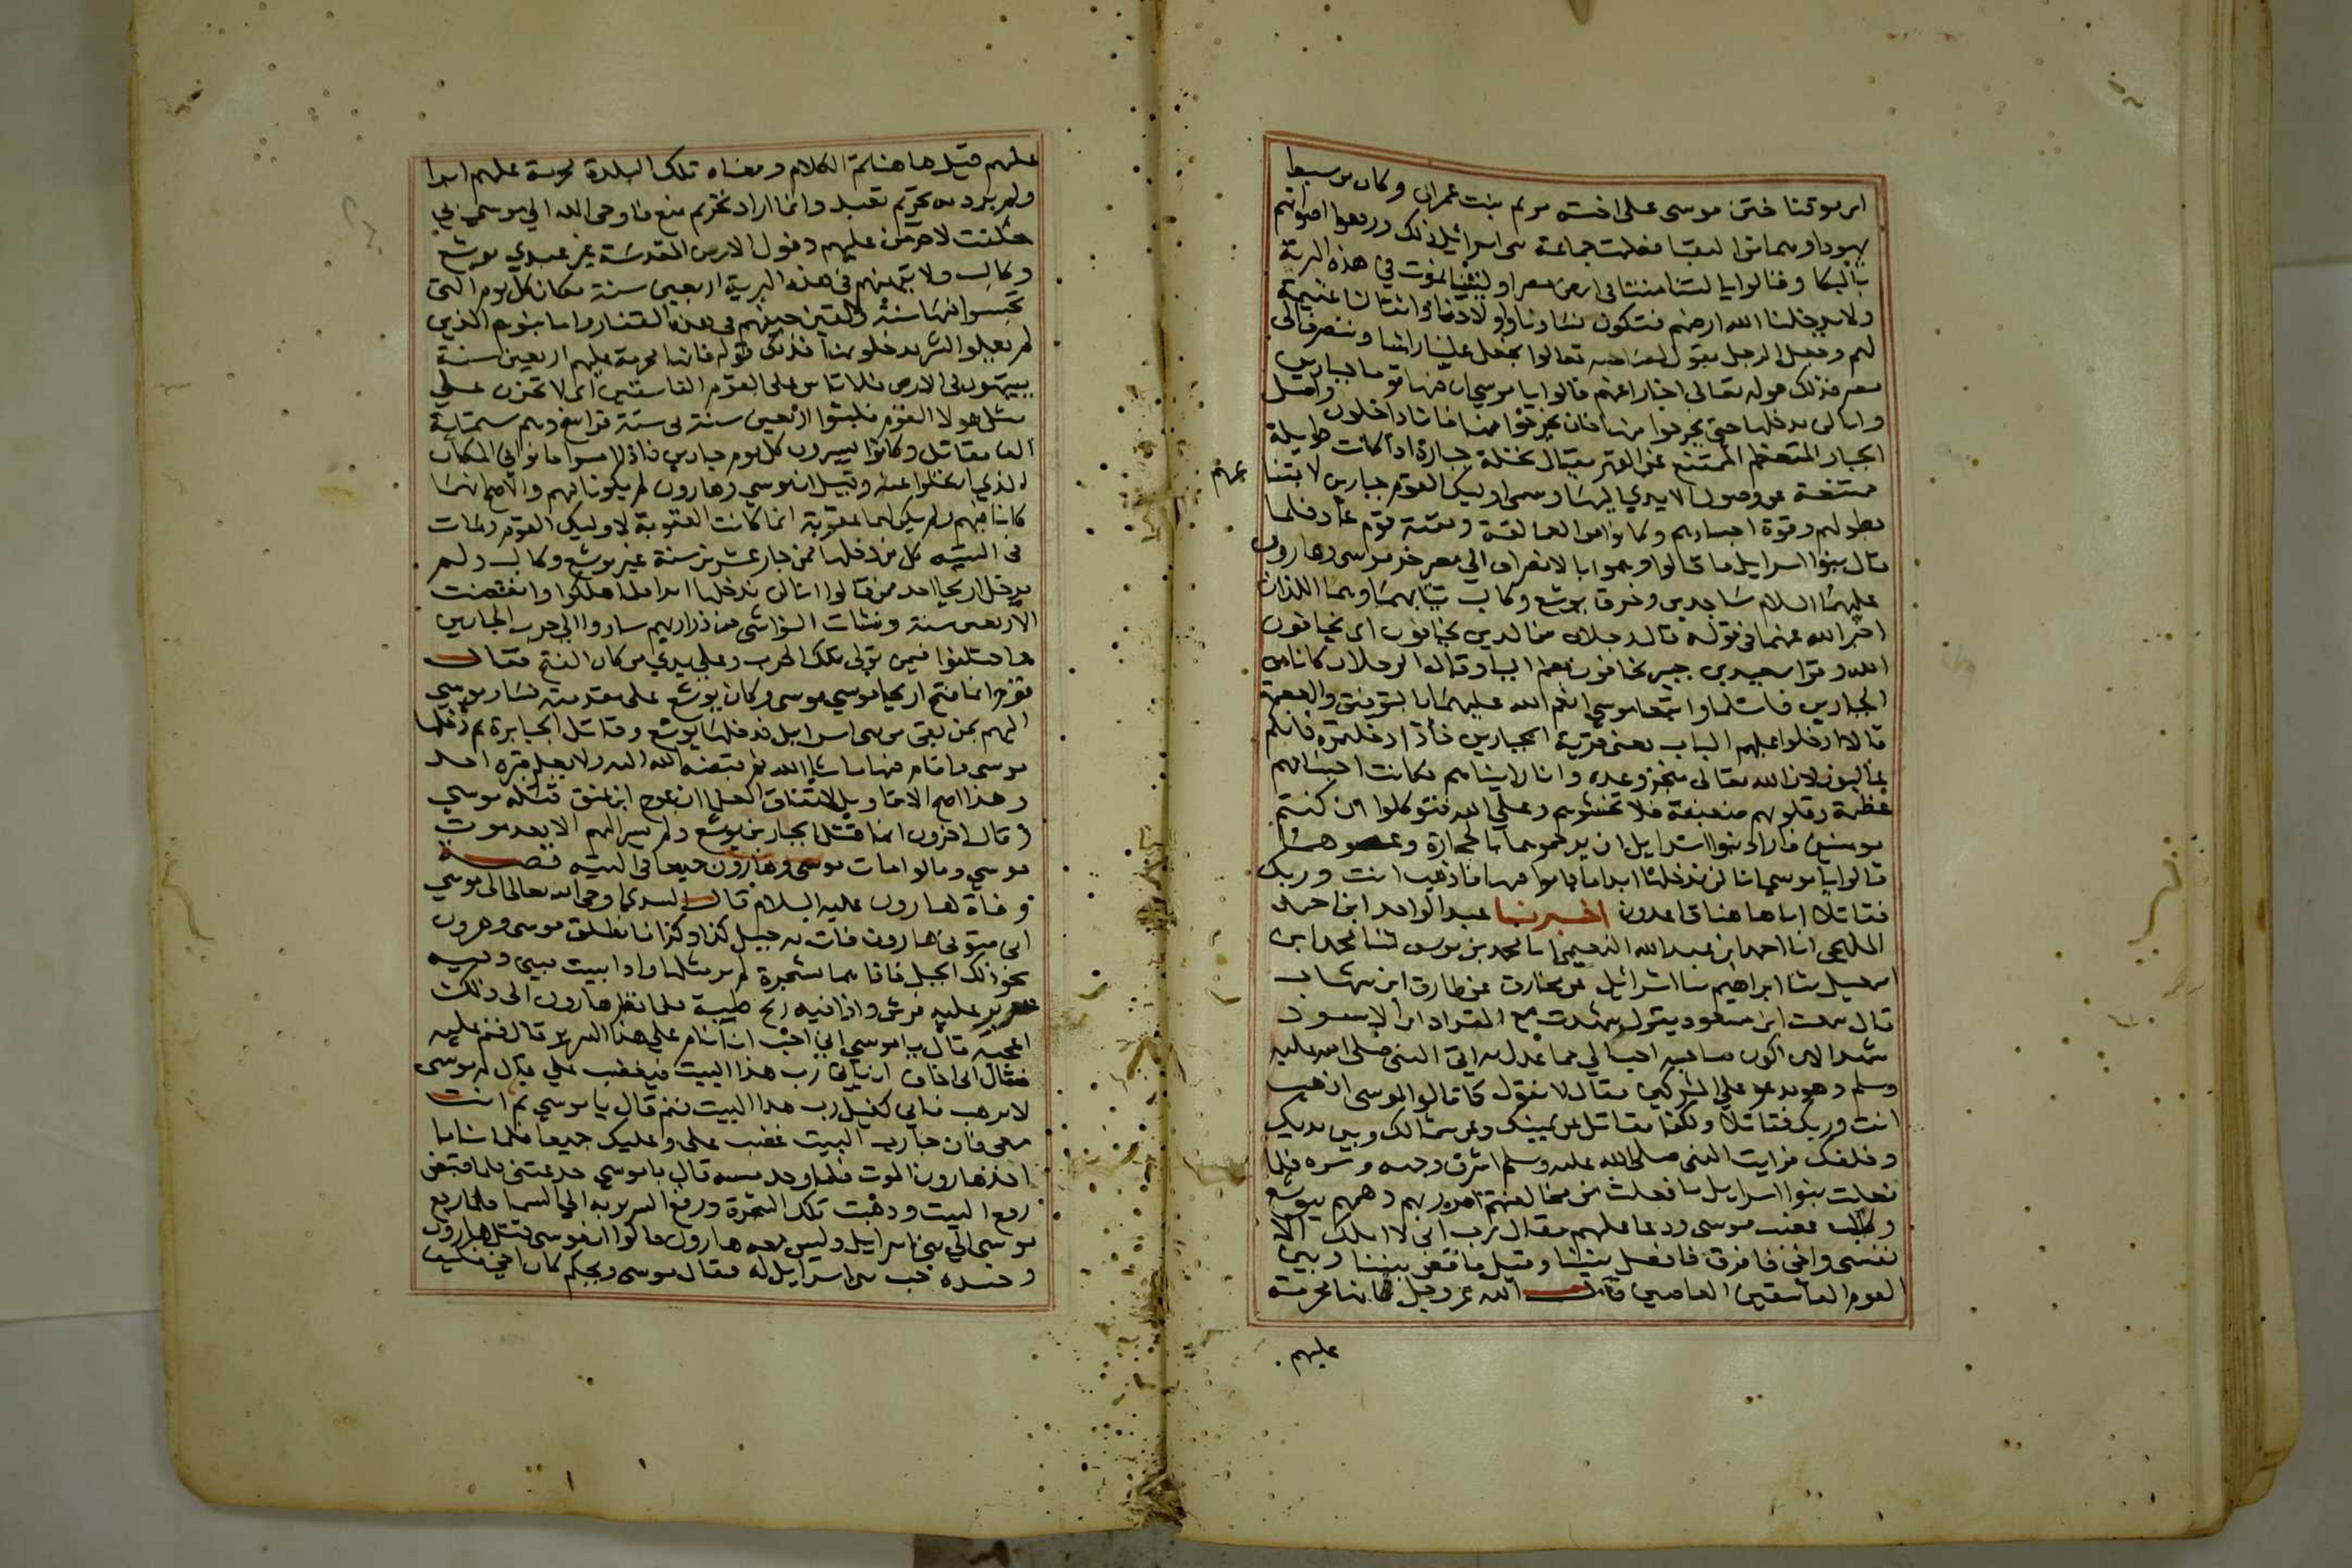 ابن يوقنا ختن موسى على اخته مريم بنت عمران وكان من سبط
يهودا وهما من النقبا فعلت جماعة بنى اسرائيل ذلك ورفعوا اصواتهم
بالبكا وقالوا يا ليتنا متنا فى ارض مصر او ليتنا نموت في هذه البرية
ولا يدخلنا الله ارضهم فتكون نساونا واولادنا واثقالنا غنيمة
لهم وجعل الرجل يقول لصاحبه تعالوا نجعل علينا راسا وننصرف الى
مصر فذلك قوله تعالى اخبارا عنهم قالوا يا موسى ان فيها قوما جبارين
وانا لن ندخلها حتى يخرجوا منها فان يخرجوا منها فانا داخلون واصل
الجبار المتعظم الممتنع عن القهر يقال نخلة جبارة اذا كانت طويلة
ممتنعة عن وصول الايدي اليها وسمى اوليك القوم جبارين لامتنا
عهم
بطولهم وقوة اجسادهم وكانوا من العمالقة وبقية قوم عاد فلما
قال بنوا اسرايل ما قالوا وهموا بالانصراف الى مصر خر موسى وهارون
عليهما السلام ساجدين وخرق يوشع وكالب ثيابهما وهما اللذان
اخبر الله عنهما فى قوله قال رجلان من الذين يخافون اى يخافون
الله وقرا سعيد بن جبير يخافون بضم اليا وقال الرجلان كانا من
الجبارين فاسلما واتبعا موسى انعم الله عليهما بالتوفيق والعصمة
قالا ادخلوا عليهم الباب يعنى قرية الجبارين فاذا دخلتموه فانكم
غالبون لان الله تعالى منجز وعده وانا رايناهم فكانت اجسامهم
عظيمة وقلوبهم ضعيفة فلا تخشوهم وعلى الله فتوكلوا ان كنتم
مومنين فاراد بنوا اسرايل ان يرجموهما بالحجارة وعصوهما
قالوا يا موسى انا لن ندخلها ابدا ما داموا فيها فاذهب انت وربك
فقاتلا انا هاهنا قاعدون اخبرنا عبد الواحد ابن احمد
المليحى انا احمد ابن عبد الله النعيمى انا محمد بن يوسف ثنا محمد ابن
اسمعيل ثنا ابو نعيم ثنا اسرائيل عن مخارق عن طارق ابن شهاب
قال سمعت ابن مسعود يقول شهدت مع المقداد ابن الاسود
مشهدا لان اكون صاحبه احب الي مما عدل به اتى النبى صلى الله عليه
وسلم وهو يدعو على المشركين فقال لا نقول كما قالوا لموسى اذهب
انت وربك فقاتلا ولكنا نقاتل عن يمينك وعن شمالك وبين يديك
وخلفك فرايت النبى صلى الله عليه وسلم اشرق وجهه وسره فلما
فعلت بنوا اسرايل ما فعلت من مخالفتهم امر ربهم وهمهم بيوشع
وكالب غضب موسى ودعا عليهم فقال رب انى لا املك الا
نفسى واخى فافرق فافصل بيننا وقيل فاقض بيننا وبين
القوم الفاسقين العاصين قال الله عز وجل فانها محرمة
عليهم
عليهم قيل هاهنا تم الكلام ومعناه تلك البلدة محرمة عليهم ابدا
ولم يرد به تحريم تعبد وانما اراد تحريم منع فاوحى الله الى موسى بي
حلفت لاحرمن عليهم دخول الارض المقدسة غير عبدي يوشع
وكالب ولاتيهنهم فى هذه البرية اربعين سنة مكان كل يوم التى
تجسسوا فيها سنة ولنلقين جيفهم فى هذه القفار واما بنوهم الذين
لم يعملوا الشر يدخلونها فذلك قوله فانها محرمة عليهم اربعين سنة
يتيهون فى الارض فلا تاس على القوم الفاسقين اى لا تحزن على
مثل هولا القوم فلبثوا اربعين سنة فى ستة فراسخ وهم ستماية
الف مقاتل وكانوا يسيرون كل يوم جادين فاذا امسوا كانوا في المكان
الذي ارتحلوا عنه وقيل ان موسى وهارون لم يكونا فيهم والاصح انهما
كانا فيهم ولم يكن لهما عقوبة انما كانت العقوبة لاوليك القوم ومات
فى التيه كل من دخلها ممن جاز عشرين سنة غير يوشع وكالب ولم
يدخل اريحا احد ممن قالوا انا لن ندخلها ابدا فلما هلكوا وانقضت
الاربعون سنة ونشات النواشى من ذراريهم ساروا الى حرب الجبارين
واختلفوا فيمن تولى تلك الحرب وعلى يدي من كان الفتح فقال
قوم انما فتح اريحا موسى وكان يوشع على مقدمته فسار موسى
اليهم بمن بقى من بنى اسرايل فدخلها يوشع وقاتل الجبابرة ثم دخلها
موسى فاقام فيها ما شا الله ثم قبضه الله اليه ولا يعلم قبره احد
وهذا اصح الاقاويل لاتفاق العلما ان عوج ابن عنق قتله موسى
وقال اخرون انما قتل الجبارين يوشع ولم يسر اليهم الا بعد موت
موسى وقالوا مات موسى وهارون جميعا فى التيه قصة
وفاة هارون عليه السلام قال السدى اوحى الله تعالى الى موسى
انى متوفى هارون فات به جبل كذا وكذا فانطلق موسى وهرون
نحو ذلك الجبل فاذا هما بشجرة لم ير مثلها واذا ببيت مبنى وفيه
سرير عليه فرش واذا فيه ريح طيبة فلما نظر هارون الى ذلك
اعجبه قال يا موسى اني احب ان انام على هذا السرير قال فنم عليه
فقال انى اخاف ان ياتى رب هذا البيت فيغضب علي قال له موسى
لا ترهب فاني اكفيك رب هذا البيت فنم قال يا موسى نم انت
معى فان جا رب البيت غضب علي وعليك جميعا فلما ناما
اخذ هارون الموت فلما وجد مسه قال يا موسى خدعتنى فلما قبض
رفع البيت وذهبت تلك الشجرة ورفع السرير به الى السما فلما رجع
موسى الى بنى اسرايل وليس معه هارون قالوا ان موسى قتل هارون
وحسده حب بنى اسرايل له فقال موسى ويحكم كان اخي فكيف